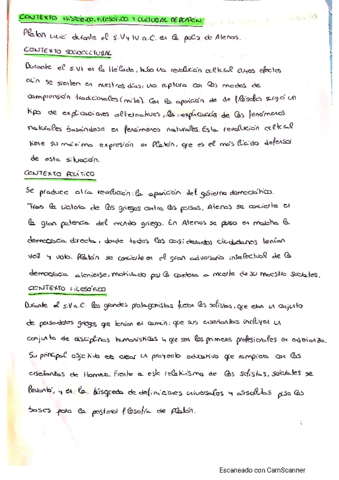 CONTEXTO HISTÓRICO, FILOSÓFICO Y CULTURAL DE PLATÓN
Platón vivió durante el S.V y IV a.C. en la polis de Atenas.
CONTEXTO SOCIOCULTURAL
Durante el S.VI en la Hélade, hubo una revolución cultural cuyos efectos
aún se sienten en nuestros días: la ruptura con los modos de
comprensión tradicionales (mito). Con la aparición de la filosofía surgió un
tipo de explicaciones alternativas, la explicación de los fenómenos
naturales basándose en fenómenos naturales. Esta revolución cultural
tiene su máxima expresión en Platón, que es el más lúcido defensor
de esta situación.
CONTEXTO POLÍTICO
Se produce otra revolución: la aparición del gobierno democrático.
Tras la victoria de los griegos contra los persas, Atenas se convierte en
la gran potencia del mundo griego. En Atenas se puso en marcha la
democracia directa, donde todos los considerados ciudadanos tenían
voz y voto. Platón se convierte en el gran adversario intelectual de la
democracia ateniense, motivado por la condena a muerte de su maestro Sócrates.
CONTEXTO FILOSÓFICO
Durante el S.V a.C. los grandes protagonistas fueron los sofistas, que eran un conjunto
de pensadores griegos que tenían en común: que sus enseñanzas incluyen un
conjunto de disciplinas humanísticas y que son los primeros profesionales en enseñanza.
Su principal objetivo es crear un proyecto educativo que rompiera con las
enseñanzas de Homero. Frente a este relativismo de los sofistas, Sócrates se
levantó, y en la búsqueda de definiciones universales y absolutas puso las
bases para la posterior filosofía de Platón.
Escaneado con CamScanner